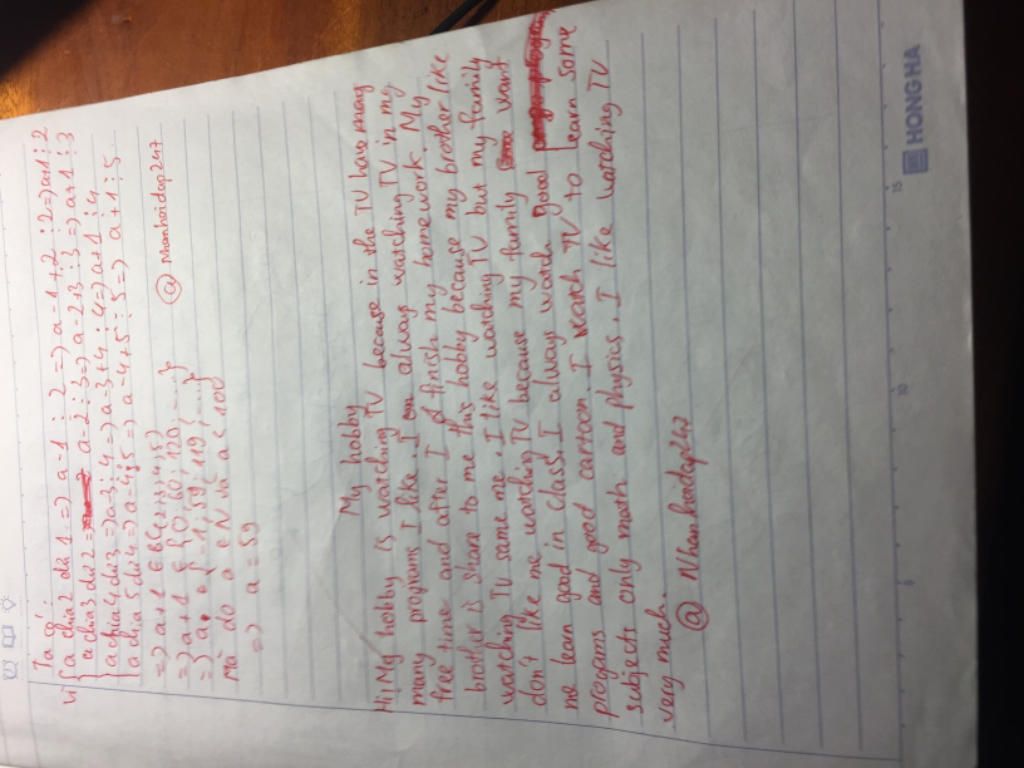 Ta có:
Vì { a chia 2 dư 1 => a-1 ⋮ 2 => a-1+2 ⋮ 2 => a+1 ⋮ 2
a chia 3 dư 2 => a-2 ⋮ 3 => a-2+3 ⋮ 3 => a+1 ⋮ 3
a chia 4 dư 3 => a-3 ⋮ 4 => a-3+4 ⋮ 4 => a+1 ⋮ 4
a chia 5 dư 4 => a-4 ⋮ 5 => a-4+5 ⋮ 5 => a+1 ⋮ 5
=> a+1 ∈ BC(2;3;4;5)
=> a+1 ∈ {0; 60; 120; ....}
=> a ∈ {-1; 59; 119; ....}
Mà do a ∈ N và a < 100
=> a = 59
@ Nhanhoidap247
My hobby
Hi! My hobby is watching TV because in the TV have many
many programs I like. I always watching TV in my
free time and after I finish my homework. My
brother is share to me this hobby because my brother like
watching TV same me. I like watching TV but my family
don't like me watching TV because my family want
me learn good in class. I always watch good
progams and good cartoon. I watch TV to learn some
subjects only math and physics. I like watching TV
very much.
@ Nhanhoidap247
HONG HA
5
10
15